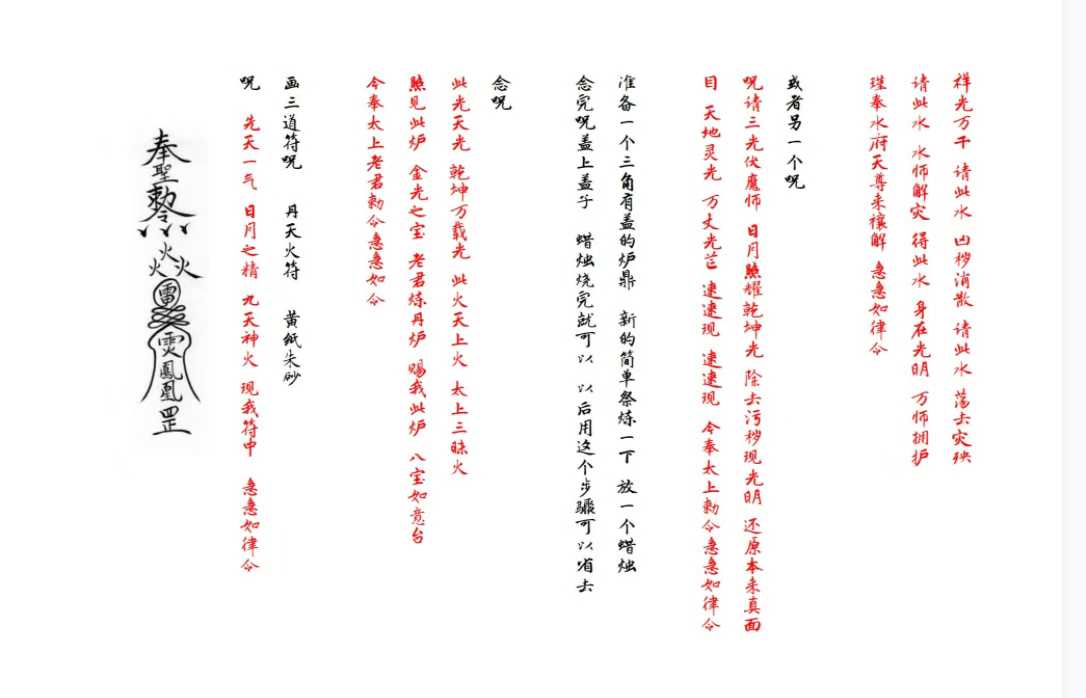 祥光万千 请此水 凶秽消散 请此水 荡去灾殃
请此水 水师解灾 得此水 身在光明 万师拥护
瑾奉水府天尊来禳解 急急如律令
或者另一个呪
呪请三光伏魔师 日月照耀乾坤光 除去污秽现光明 还原本来真面
目 天地灵光 万丈光芒 速速现 速速现 令奉太上勅令急急如律令
准备一个三角有盖的炉鼎 新的简单祭炼一下 放一个蜡烛
念完呪盖上盖子 蜡烛烧完就可以 以后用这个步骤可以省去
念呪
此光天光 乾坤万载光 此火天上火 太上三昧火
照见此炉 金光之宝 老君炼丹炉 赐我此炉 八宝如意台
令奉太上老君勅令急急如令
画三道符呪 丹天火符 黄纸朱砂
呪 先天一气 日月之精 九天神火 现我符中 急急如律令
奉聖勅令火火火雷靈鳳凰罡